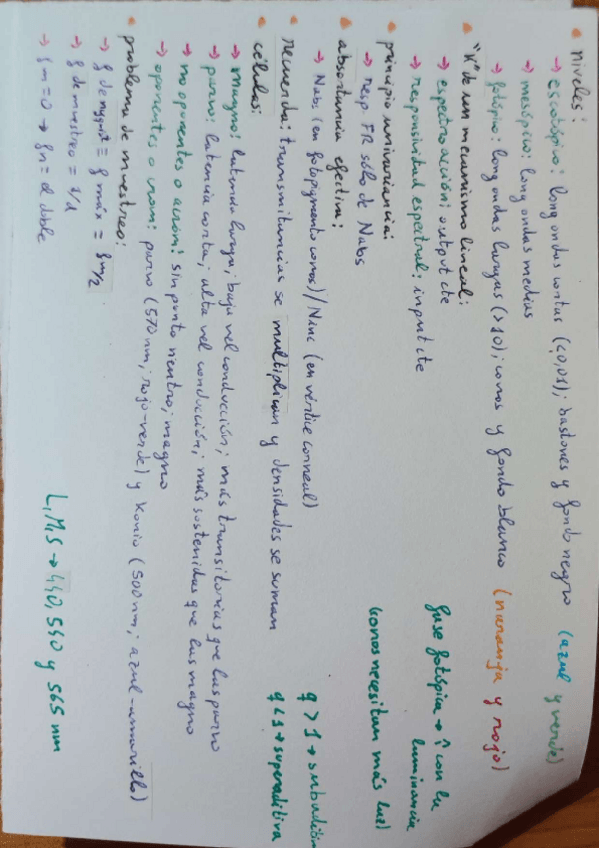 • niveles:
→ escotópico: long ondas cortas (<0,01); bastones y fondo negro (azul y verde)
→ mesópico: long ondas medias
→ fotópico: long ondas largas (>10); conos y fondo blanco (naranja y rojo)
• "K" de un mecanismo lineal:
→ espectro acción: output cte
→ responsividad espectral: input cte
fase fotópica → î con la luminancia
(conos necesitan más luz)
• principio univariancia:
→ resp. FR sólo de Nabs
• absortancia efectiva:
→ Nabs (en fotopigmento conos) / Ninc (en vértice corneal)
• recuerda: transmitancias se multiplican y densidades se suman
q > 1 → subaditiva
q < 1 → superaditiva
• células:
→ magno: latencia larga; baja vel conducción; más transitorias que las parvo
→ parvo: latencia corta; alta vel conducción; más sostenidas que las magno
→ no oponentes o acrom: sin punto neutro; magno
→ oponentes o crom: parvo (570 nm, rojo-verde) y konio (500 nm; azul-amarillo)
• problema de muestreo:
→ f de nyquist = f máx = fm/2
→ f de muestreo = 1/d
→ fm=0 → fn = el doble
L, M, S → 440, 540 y 565 nm